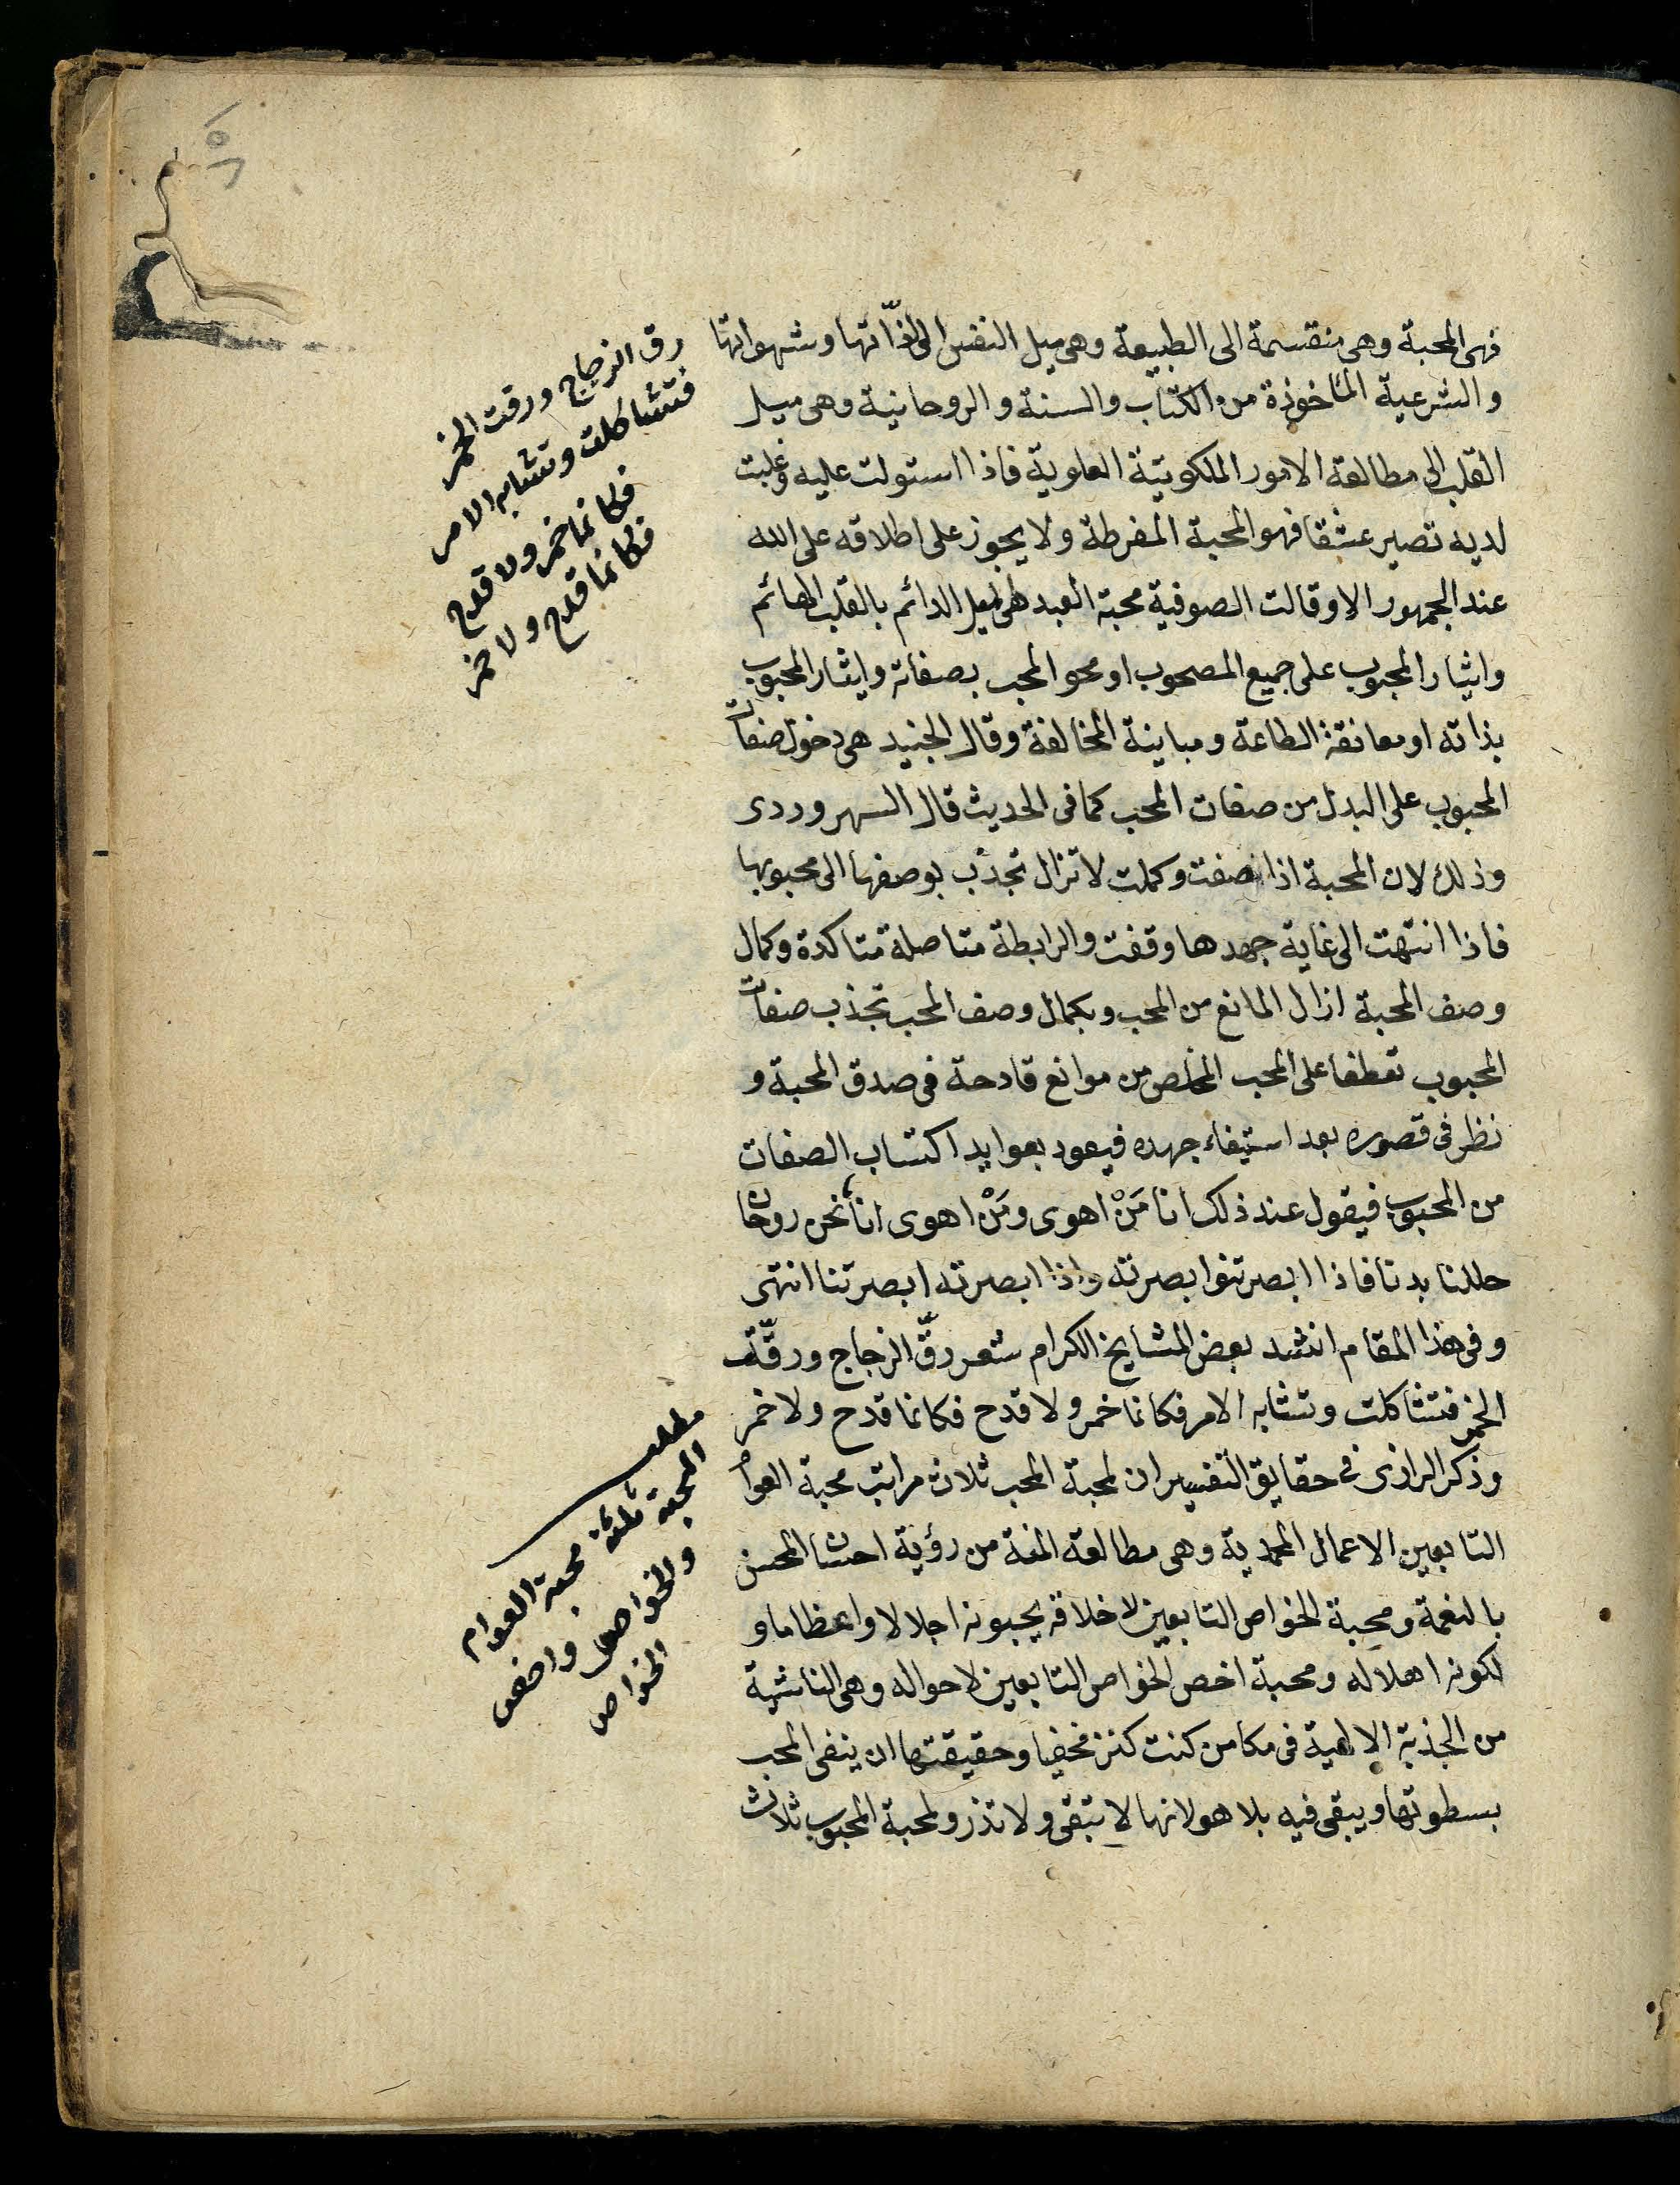 فهى المحبة وهى منقسمة الى الطبيعة وهى ميل النفس الى لذّاتها وشهواتها
والشرعية الماخوذة من الكتاب والسنة والروحانية وهى ميل
القلب الى مطالعة الامور الملكوتية العلوية فاذا استولت عليه وغلبت
لديه تصير عشقا فهو المحبة المفرطة ولا يجوز على اطلاقه على الله
عند الجمهور الا وقالت الصوفية محبة العبد هى الميل الدائم بالقلب الهائم
وايثار المحبوب على جميع المصحوب او محو المحب بصفاته وايثار المحبوب
بذاته او معانقة الطاعة ومباينة المخالفة وقال الجنيد هى دخول صفات
المحبوب على البدل من صفات المحب كما فى الحديث قال السهروردى
وذلك لان المحبة اذا صفت وكملت لا تزال تجذب بوصفها الى محبوبها
فاذا انتهت الى غاية جهدها وقفت والرابطة متاصلة متاكدة وكمال
وصف المحبة ازال المانع من المحب وبكمال وصف المحب تجذب صفات
المحبوب تعطفا على المحب المخلص من موانع قادحة فى صدق المحبة و
نظر فى قصوره بعد استيفاء جهده فيعود بعوايد اكتساب الصفات
من المحبوب فيقول عند ذلك انا مَنْ اهوى ومَنْ اهوى انا نحن روحان
حللنا بدنا فاذا ابصرتنو ابصرته واذا ابصرته ابصرتنا انتهى
وفى هذا المقام انشد بعض المشايخ الكرام شعر رقّ الزجاج ورقّت
الخمر فتشاكلت وتشابه الامر فكانما خمر ولا قدح فكانما قدح ولا خمر
وذكر الرازى فى حقايق التفسير ان لمحبة المحب ثلاث مراتب محبة العوام
التابعين الاعمال المحمدية وهى مطالعة المنة من رؤية احسان المحسن
بالنعمة ومحبة الخواص التابعين لاخلاقه يحبونه اجلالا واعظاما و
لكونه اهلا له ومحبة اخص الخواص التابعين لاحواله وهى الناشية
من الجذبة الالهية فى مكامن كنت كنز مخفيا وحقيقتها ان ينفى المحب
بسطوتها ويبقى فيه بلا هو لانها لا تبقى ولا تذر ولمحبة المحبوب ثلاث
رق الزجاج ورقت الخمر
فتشاكلت وتشابه الامر
فكانما خمر ولا قدح
فكانما قدح ولا خمر
مطلب
المحبة ثلثة محبة العوام
والخواص واخص
الخواص